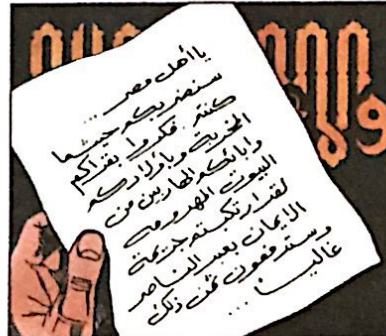 يا أهل مصر ...
سنضربكم حيثما
كنتم. فكروا بقراكم
المخربة وبأولادكم
وآبائكم الهاربين من
البيوت المهدومة
لقد ارتكبتم جريمة
الإيمان بعبد الناصر
وستدفعون ثمن ذلك
غاليا ...